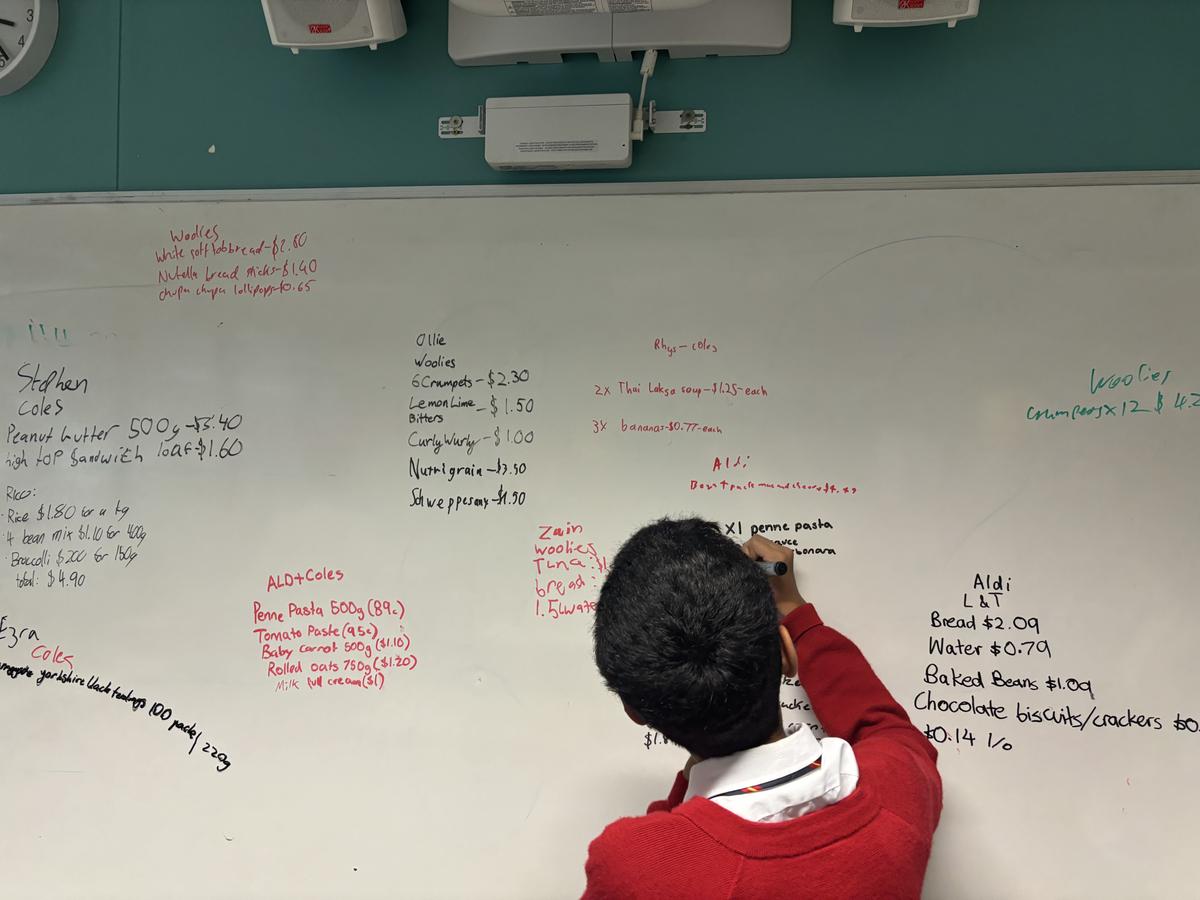 3
4
Woolies
White soft tobbread-$2.80
Nutella bread sticks-$1.40
chupa chupa lollipops-$0.65
Stephen
Coles
Peanut butter 500g-$3.40
high top sandwich loaf-$1.60
Rico:
Rice $1.80 for a kg
4 bean mix $1.10 for 400g
Broccolli $2.00 for 150g
total: $4.90
Ezra
Coles
yorkshire black teabags 100 pack/220g
ALDI+Coles
Penne Pasta 500g (89c)
Tomato Paste (95c)
Baby carrot 500g ($1.10)
Rolled oats 750g ($1.20)
Milk full cream ($1)
Ollie
Woolies
6 Crumpets-$2.30
Lemon Lime - $1.50
Bitters
Curly Wurly-$1.00
Nutrigrain-$3.50
Schweppes $1.50
Zain
woolies
Tuna: $1
bread:
1.5L wate
Rhys-coles
2x Thai Laksa soup-$1.25-each
3x bananas-$0.77-each
Aldi
X1 penne pasta
auce
bonara
$1.
Woolies
crumpets x12 $4.2
Aldi
L&T
Bread $2.09
Water $0.79
Baked Beans $1.09
Chocolate biscuits/crackers $0.
$0.14 l/o